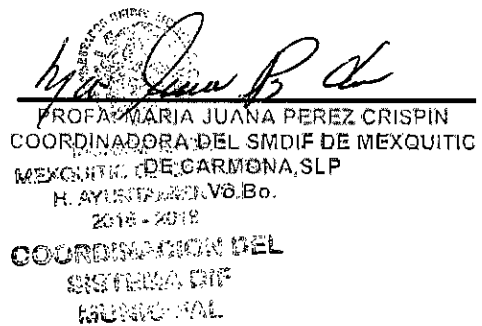 PROFA. MARIA JUANA PEREZ CRISPIN
COORDINADORA DEL SMDIF DE MEXQUITIC
DE CARMONA, SLP
MEXQUITIC
H. AYUNTAMIENTO Vo.Bo.
2016 - 2018
COORDINACION DEL
SISTEMA DIF
MUNICIPAL